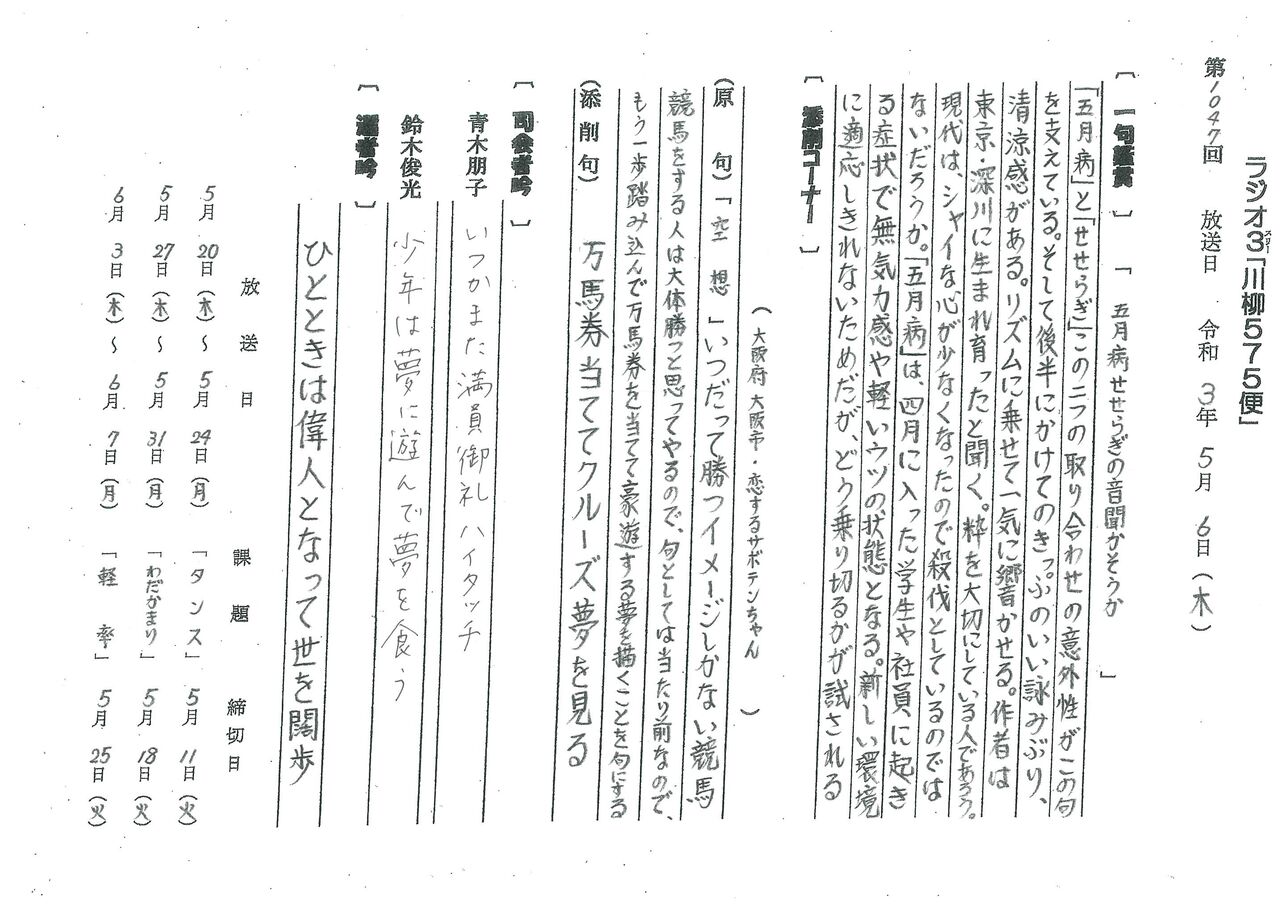 ラジオ3「川柳575便」
スリー
第1047回 放送日 令和3年5月6日(木)
[一句鑑賞] 「五月病せせらぎの音聞かそうか」
「五月病」と「せせらぎ」この二つの取り合わせの意外性がこの句
を支えている。そして後半にかけてのきっぷのいい詠みぶり、
清涼感がある。リズムに乗せて一気に響かせる。作者は
東京・深川に生まれ育ったと聞く。粋を大切にしている人であろう。
現代は、シャイな心が少なくなったので殺伐としているのでは
ないだろうか。「五月病」は、四月に入った学生や社員に起き
る症状で無気力感や軽いウツの状態となる。新しい環境
に適応しきれないためだが、どう乗り切るかが試される
[添削コーナー]
(大阪府大阪市・恋するサボテンちゃん)
(原句)「空想」いつだって勝つイメージしかない競馬
競馬をする人は大体勝つと思ってやるので、句としては当たり前なので、
もう一歩踏み込んで万馬券を当てて豪遊する夢を描くことを句にする
(添削句) 万馬券当ててクルーズ夢を見る
[司会者吟]
青木朋子 いつかまた満員御礼ハイタッチ
鈴木俊光 少年は夢に遊んで夢を食う
[選者吟]
ひとときは偉人となって世を闊歩
放送日 課題 締切日
5月20日(木)～5月24日(月) 「タンス」 5月11日(火)
5月27日(木)～5月31日(月) 「わだかまり」 5月18日(火)
6月3日(木)～6月7日(月) 「軽率」 5月25日(火)